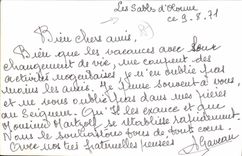 Les Sables d'Olonne
ce 9.8.71
Bien chers amis.
Bien que les vacances avec
changement de vie, me coupent des
activités, je n'en oublie pas
moins les amis. Je pense souvent à vous
et ne vous oublie pas dans mes prières
au Seigneur. Qu'Il les exauce et que
Monsieur se rétablisse rapidement.
Nous le souhaitons tous de tout cœur.
Avec nos très fraternelles pensées